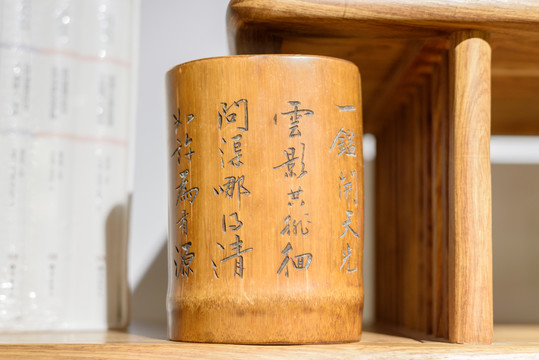 一鑑開天光
雲影共徘徊
問渠哪得清
如許為有源